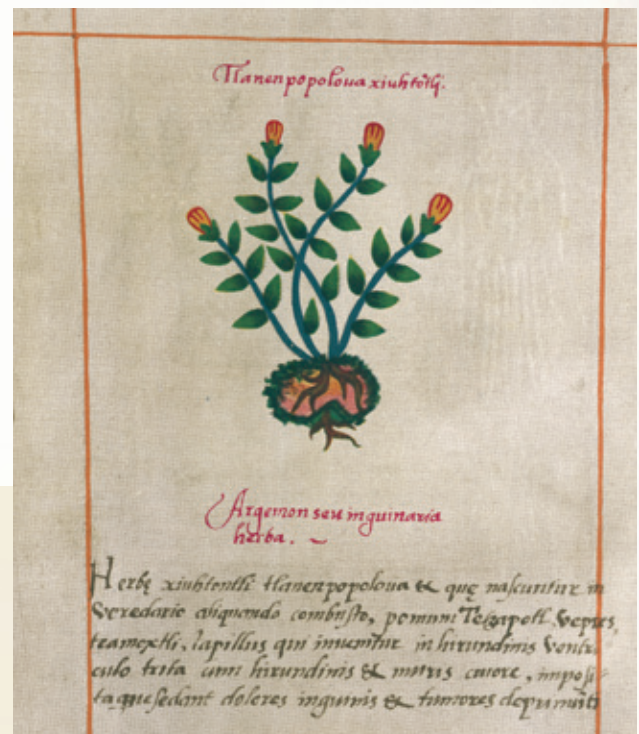 Tlanenpopoloua xiuhtõtlj.
Argemon seu inguinaria
herba.
Herbę xiuhtontli tlanenpopoloua & quę nascuntur in
veredario aliquando combusto, pomum Tetzapotl, vepres
teamoxtli, lapillus qui inuenitur in hirundinis ventri
culo trita cum hirundinis & muris cruore, imposi
taque sedant dolores inguinis & tumores deprimũt